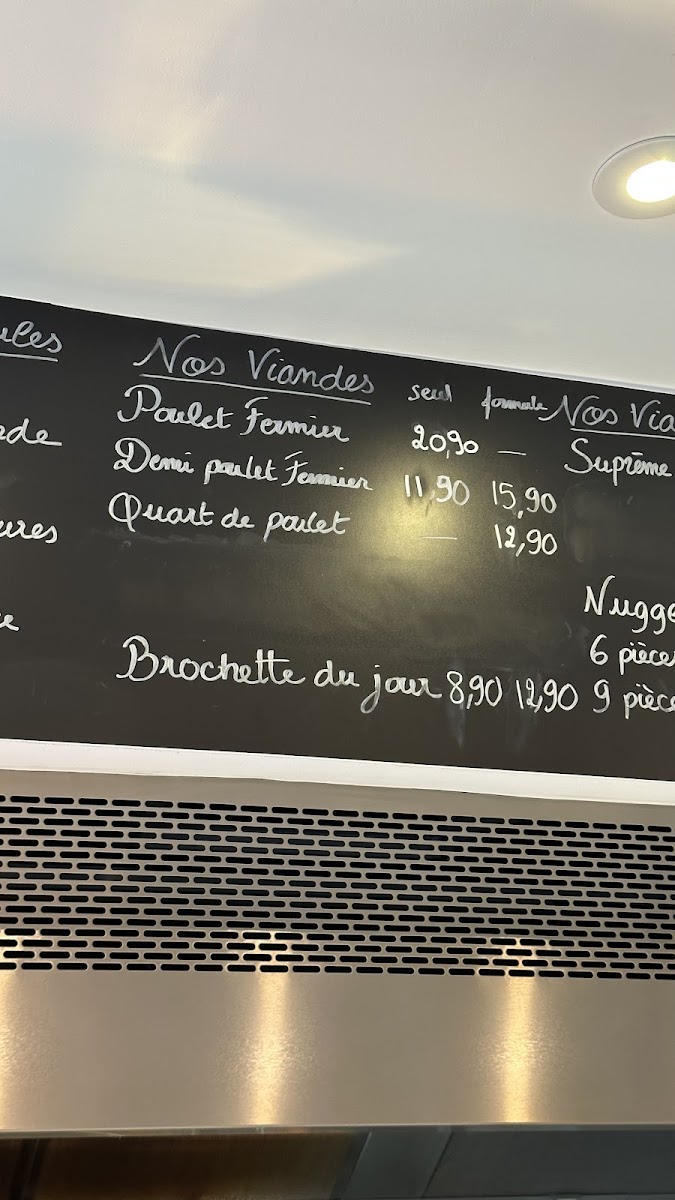 Nos Viandes seul formule
Poulet Fermier 20,90 —
Demi poulet Fermier 11,90 15,90
Quart de poulet — 12,90
Brochette du jour 8,90 12,90
Nos Via
Suprême
Nugge
6 pièce
9 pièce